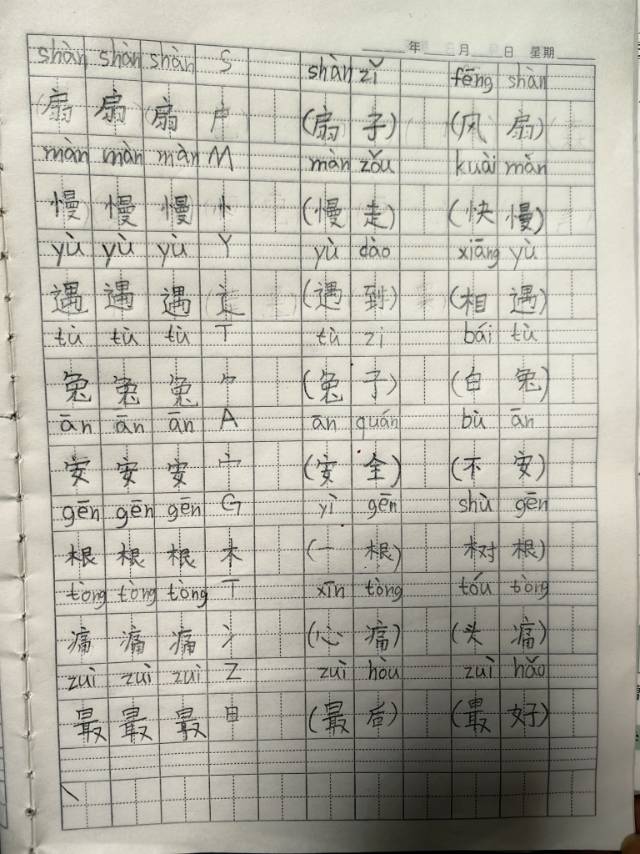 年 月 日 星期
shàn shàn shàn S shàn zǐ fēng shàn
扇 扇 扇 户 (扇 子) (风 扇)
màn màn màn M màn zǒu kuài màn
慢 慢 慢 忄 (慢 走) (快 慢)
yù yù yù Y yù dào xiāng yù
遇 遇 遇 辶 (遇 到) (相 遇)
tù tù tù T tù zi bái tù
兔 兔 兔 ⺈ (兔 子) (白 兔)
ān ān ān A ān quán bù ān
安 安 安 宀 (安 全) (不 安)
gēn gēn gēn G yì gēn shù gēn
根 根 根 木 (一 根) 树 根)
tòng tòng tòng T xīn tòng tóu tòng
痛 痛 痛 (心 痛) (头 痛)
zuì zuì zuì Z zuì hòu zuì hǎo
最 最 最 日 (最 后) (最 好)